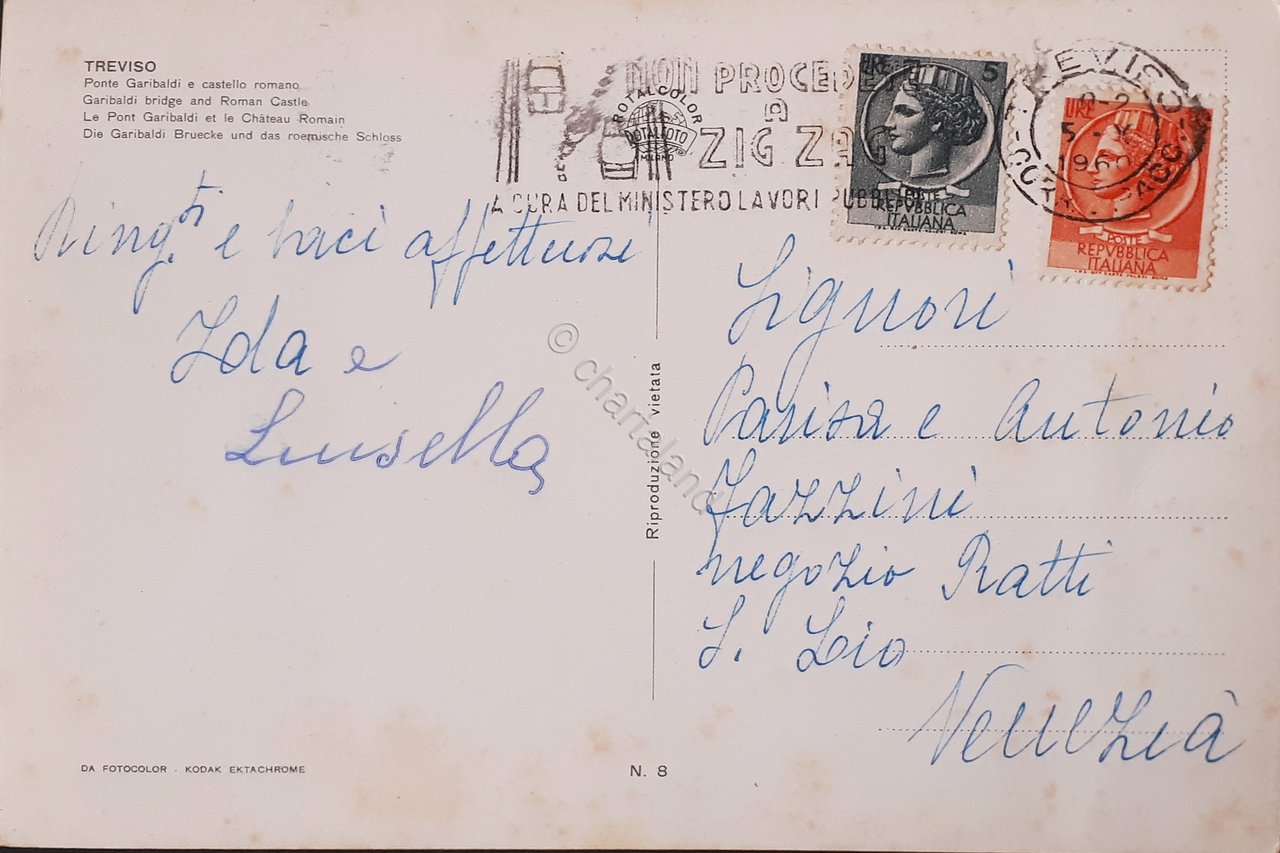 TREVISO
Ponte Garibaldi e castello romano
Garibaldi bridge and Roman Castle
Le Pont Garibaldi et le Château Romain
Die Garibaldi Bruecke und das roemische Schloss
NON PROCEDETE
A
ZIG ZAG
A CURA DEL MINISTERO LAVORI PUBBLICI
ROTALCOLOR
ROTALFOTO
MILANO
LIRE 5
POSTE
REPVBBLICA
ITALIANA
LIRE
POSTE
REPVBBLICA
ITALIANA
TREVISO
Ring.ti e baci affettuosi
Ida e
Luisella
Signori
Parisa e Antonio
Zazzini
negozio Ratti
S. Lio
Venezia
Riproduzione vietata
© chartaland
DA FOTOCOLOR - KODAK EKTACHROME
N. 8